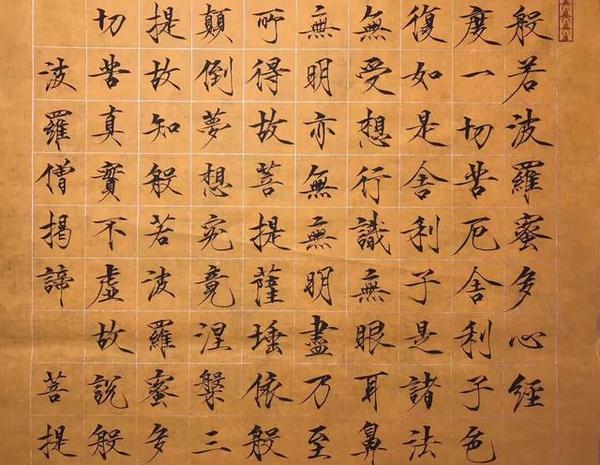 般若波羅蜜多心經
度一切苦厄舍利子色
復如是舍利子是諸法
無受想行識無眼耳鼻
無明亦無無明盡乃至
所得故菩提薩埵依般
顛倒夢想究竟涅槃三
提故知般若波羅蜜多
切苦真實不虛故說般
波羅僧揭諦 菩提